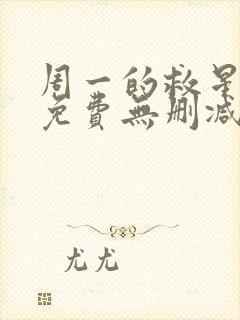 周一的救星
免費無删减
尤尤